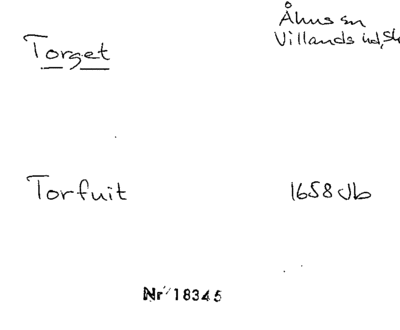 Torget
Åhus sn
Villands hd, Sk
Torfuit
1658 Jb
Nr 18345